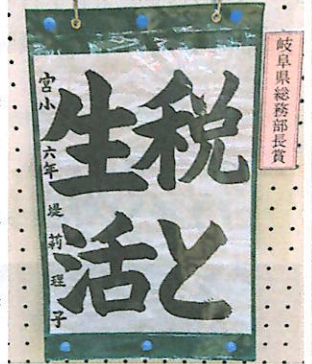 岐阜県総務部長賞
税と
生活
宮小 六年 堤 莉理子